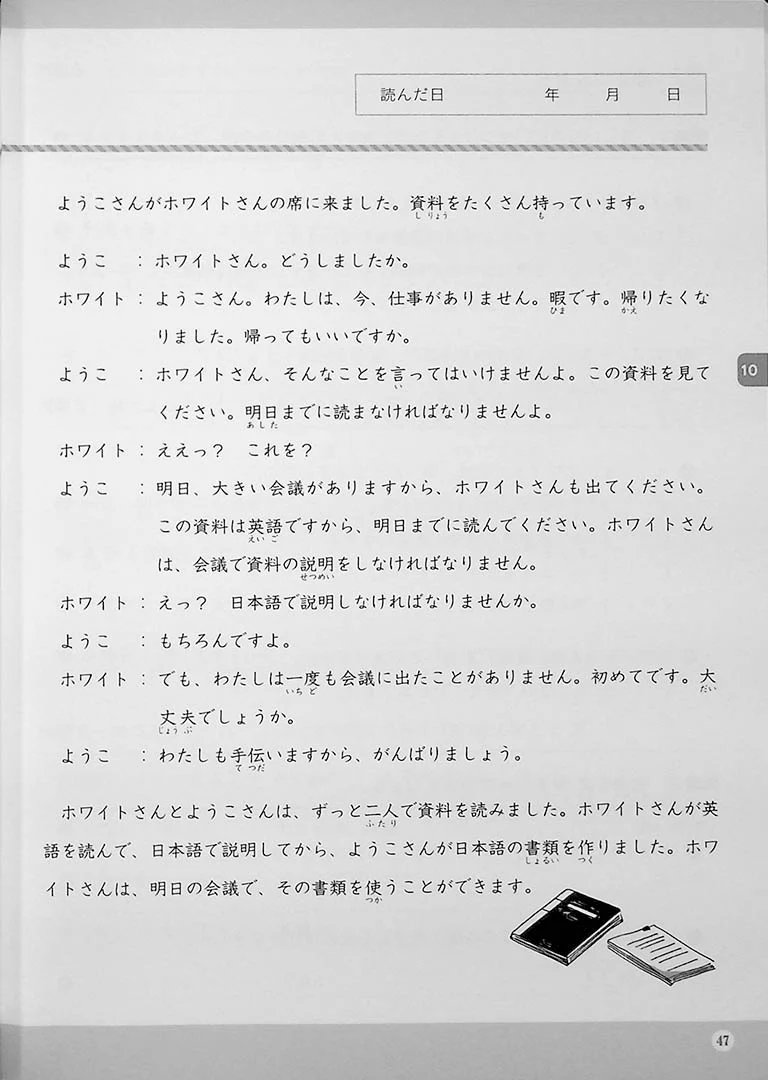 読んだ日　年　月　日
ようこさんがホワイトさんの席に来ました。資料をたくさん持っています。
しりょう　も
ようこ　：ホワイトさん。どうしましたか。
ホワイト：ようこさん。わたしは、今、仕事がありません。暇です。帰りたくな
ひま　かえ
りました。帰ってもいいですか。
ようこ　：ホワイトさん、そんなことを言ってはいけませんよ。この資料を見て
い
ください。明日までに読まなければなりませんよ。
あした
ホワイト：ええっ？　これを？
ようこ　：明日、大きい会議がありますから、ホワイトさんも出てください。
この資料は英語ですから、明日までに読んでください。ホワイトさん
えいご
は、会議で資料の説明をしなければなりません。
せつめい
ホワイト：えっ？　日本語で説明しなければなりませんか。
ようこ　：もちろんですよ。
ホワイト：でも、わたしは一度も会議に出たことがありません。初めてです。大
いちど　だい
丈夫でしょうか。
じょうぶ
ようこ　：わたしも手伝いますから、がんばりましょう。
てつだ
ホワイトさんとようこさんは、ずっと二人で資料を読みました。ホワイトさんが英
ふたり
語を読んで、日本語で説明してから、ようこさんが日本語の書類を作りました。ホワ
しょるい　つく
イトさんは、明日の会議で、その書類を使うことができます。
つか
10
47